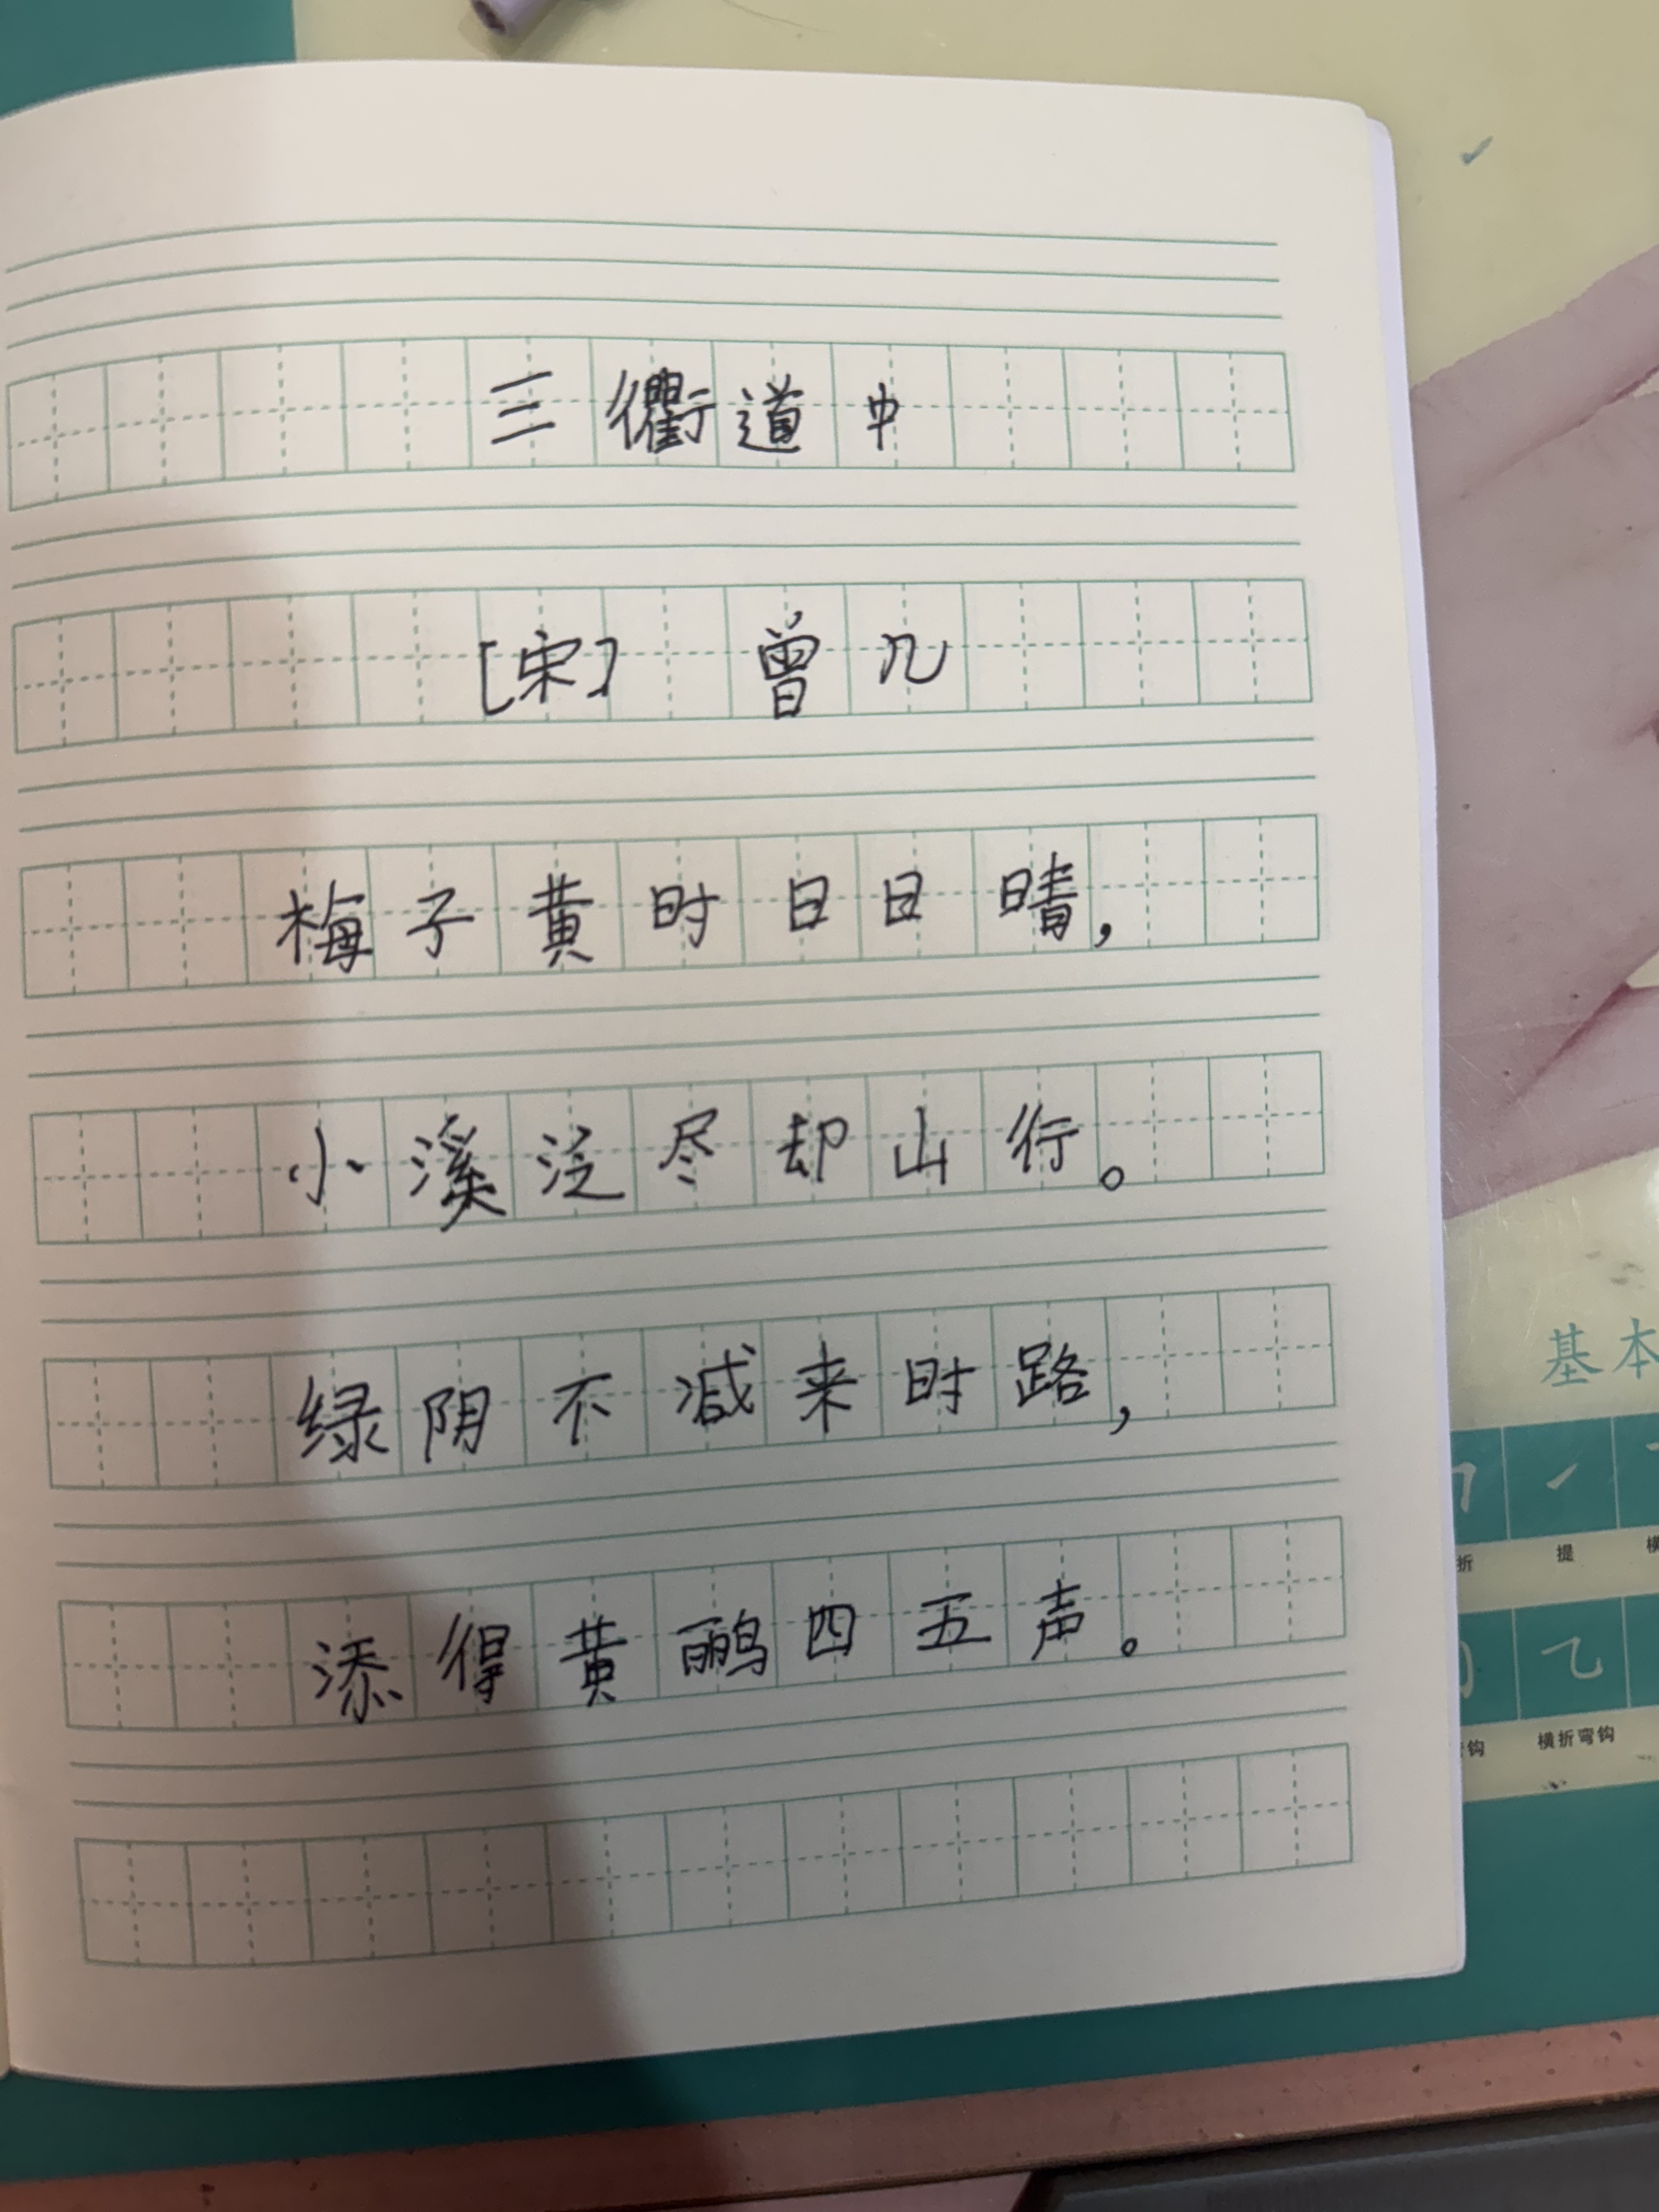 三衢道中
[宋] 曾几
梅子黄时日日晴，
小溪泛尽却山行。
绿阴不减来时路，
添得黄鹂四五声。
基本
折
提
横
弯钩
横折弯钩